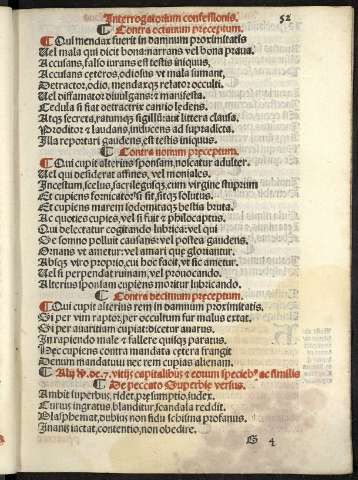 Interrogatorium confessionis.
52
¶ Contra octauum preceptum.
¶ Qui mendax fuerit in damnum proximitatis
Uel mala qui dicit bona narrans vel bona praua.
Accusans, falso iurans est testis iniquus,
Accusans ceteros, odiosus vt mala sumant,
Detractor, odio, mendaxque relator occulti.
Uel diffamator diuulgans: & manifesta.
Cedula si fiat detractrix cantio ledens,
Atque secreta, ratumque sigillum: aut littera clausa.
Proditor & laudans, inducens ad supradicta.
Illa reportari gaudens, est testis iniquus.
¶ Contra nonum preceptum.
¶ Qui cupit alterius sponsam, noscatur adulter.
Uel qui desiderat affines, vel moniales.
Incestum, scelus, sacrilegusque, cum virgine stuprum
Et cupiens fornicator si sit, sitque solutus.
Et cupiens marem sodomitaque bestia bruta.
Ac quoties cupies, vel si fuit & philocaptus.
Qui delectatur cogitando lubrica: vel qui
De somno pollui causans: vel postea gaudens,
Ornans vt ametur: vel amari que gloriantur.
Absque viro proprio, cui hoc facit, vt sic ametur.
Uel si perpendat ruinam, vel prouocando.
Alterius sponsam cupiens monitur lubricando.
¶ Contra decimum preceptum.
¶ Qui cupit alterius rem in damnum proximitatis.
Si per vim raptor, per occultum fur malus extat.
Si per auaritiam cupiat: dicetur auarus.
In rapiendo male & fallere quisque paratus.
Nec cupiens contra mandata cetera frangit
Denum mandatum nec rem cupias alienam.
de. 7. vitijs capitalibus & eorum
¶ De peccato Superbie versus.
Ambit superbus, ridet, presumptio, iudex.
Curuus ingratus blanditur, scandala reddit.
Blasphemat, dubius non fidu schisma profanus.
Inanis iactat, contentio, non obedire.
G 4